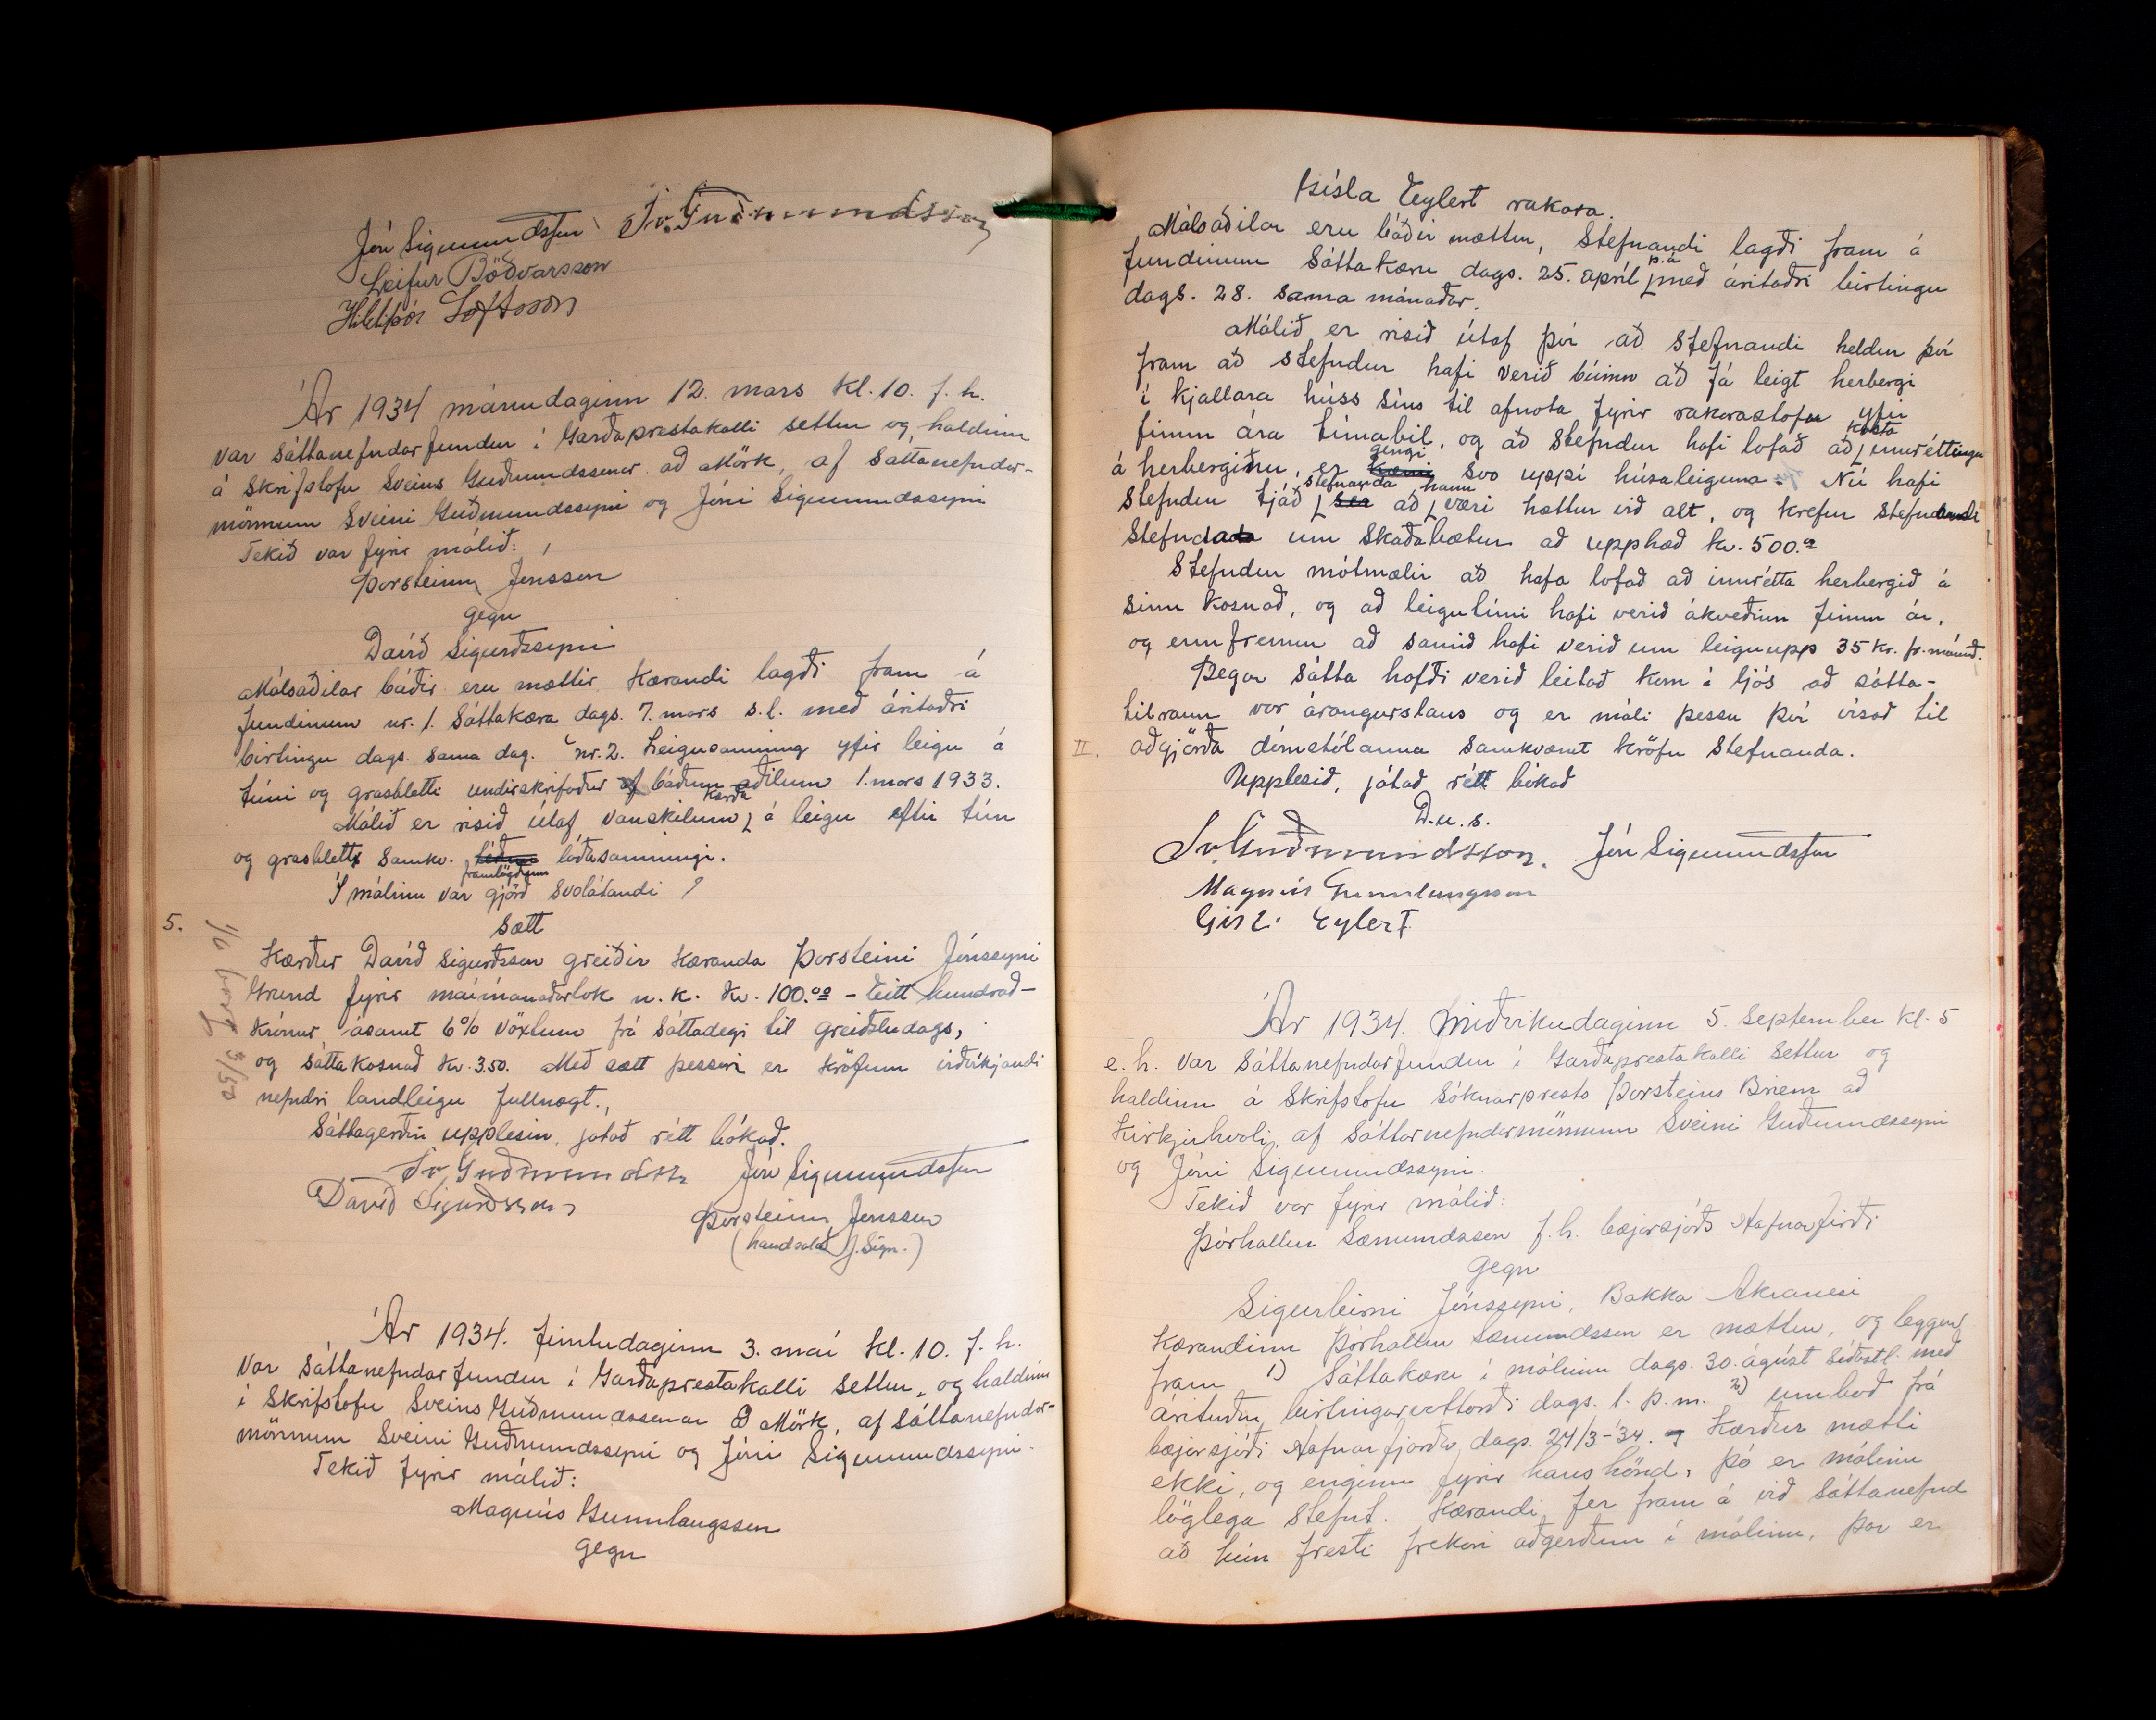 Jón Sigmundsson Sv. Guðmundsson
Leifur Böðvarsson
Hildiþór Loftsson
Ár 1934 mánudaginn 12. mars kl. 10. f. h.
var sáttanefndarfundur í Garðaprestakalli settur og haldinn
á skrifstofu Sveins Guðmundssonar að Mörk, af sáttanefndar-
mönnum Sveini Guðmundssyni og Jóni Sigmundssyni
Tekið var fyrir málið:
Þorsteinn Jónsson
gegn
Davíð Sigurðssyni
Málsaðilar báðir eru mættir. Kærandi lagði fram á
fundinum nr. 1. Sáttakæra dags. 7. mars s.l. með áritaðri
birtingu dags. sama dag. nr. 2. Leigusamning yfir leigu á
túni og grasbletti undirskrifaður af báðum aðilum 1. mars 1933.
Málið er risið útaf vanskilum kærða á leigu eftir tún
og grasblett samkv. framlögðum lóðasamningi.
Í málinu var gjörð svolátandi
5.
Sætt
Kærður Davíð Sigurðsson greiðir kæranda Þorsteini Jónssyni
Grund fyrir maímánaðarlok n. k. kr. 100.00 - Eitt hundrað -
krónur ásamt 6% vöxtum frá sáttadegi til greiðsludags,
og sáttakosnað kr. 3.50. Með sætt þessari er kröfum viðvíkjandi
nefndri landleigu fullnægt.,
Sáttagerðin upplesin, játað rétt bókað.
Sv. Guðmundsson Jón Sigmundsson
Davíð Sigurðsson
Þorsteinn Jónsson
(handsalað J. Sigm.)
Ár 1934. fimtudaginn 3. maí kl. 10. f. h.
var sáttanefndarfundur í Garðaprestakalli settur, og haldinn
í skrifstofu Sveins Guðmundssonar á Mörk, af sáttanefndar-
mönnum Sveini Guðmundssyni og Jóni Sigmundssyni.
Tekið fyrir málið:
Magnús Gunnlaugsson
gegn
Gísla Eylert rakara.
Málsaðilar eru báðir mættir, Stefnandi lagði fram á
fundinum sáttakæru dags. 25. apríl þ.á með áritaðri birtingu
dags. 28. sama mánaðar.
Málið er risið útaf því að stefnandi heldur því
fram að stefndur hafi verið búinn að fá leigt herbergi
í kjallara húss síns til afnota fyrir rakarastofu yfir
fimm ára tímabil, og að stefndur hafi lofað að kosta innréttingu
á herberginu, er gengi svo uppí húsaleiguna. Nú hafi
stefndur tjáð stefnanda að hann væri hættur við alt, og krefur stefnandi
stefnda um skaðabætur að upphæð kr. 500.00
Stefndur mótmælir að hafa lofað að innrétta herbergið á
sinn kosnað, og að leigutími hafi verið ákveðinn fimm ár,
og ennfremur að samið hafi verið um leiguupp 35 kr. pr. mánuð.
Þegar sátta hafði verið leitað kom í ljós að sátta-
tilraun var árangurslaus og er máli þessu því vísað til
II. aðgjörða dómstólanna samkvæmt kröfu stefnanda.
Upplesið, játað rétt bókað
D.u.s.
Sv. Guðmundsson. Jón Sigmundsson
Magnús Gunnlaugsson
Gísl. Eylert
Ár 1934. miðvikudaginn 5. september kl. 5
e. h. var sáttanefndarfundur í Garðaprestakalli settur og
haldinn á skrifstofu sóknarprests Þorsteins Briem að
Kirkjuhvoli, af sáttarnefndarmönnum Sveini Guðmundssyni
og Jóni Sigmundssyni.
Tekið var fyrir málið:
Þórhallur Sæmundsson f. h. bæjarsjóðs Hafnarfirði
gegn
Sigurbirni Jónssyni, Bakka Akranesi
Kærandinn Þórhallur Sæmundsson er mættur, og leggur
fram 1) Sáttakæru í málinu dags. 30. ágúst síðastl. með
árituðu birtingarvottorði dags. 1. þ. m. 2) umboð frá
bæjarsjóði Hafnarfjarðar dags. 24/3-'34. Kærður mætti
ekki, og enginn fyrir hans hönd, þó er málinu
löglega stefnt. Kærandi fer fram á við sáttanefnd
að hún fresti frekari aðgerðum í málinu, þar er